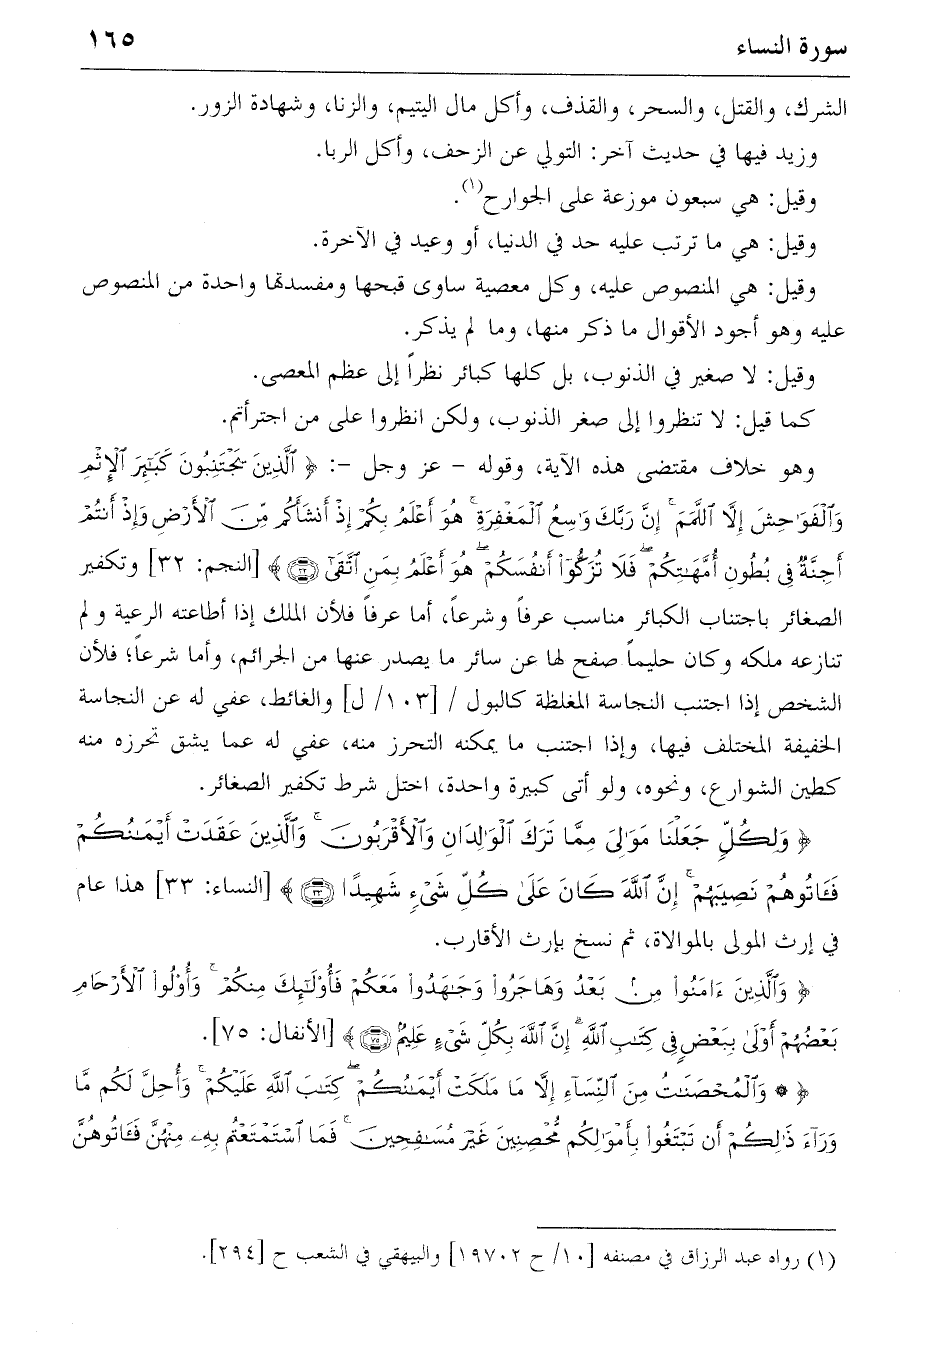 سورة النساء ١٦٥
الشرك، والقتل، والسحر، والقذف، وأكل مال اليتيم، والزنا، وشهادة الزور.
وزيد فيها في حديث آخر: التولي عن الزحف، وأكل الربا.
وقيل: هي سبعون موزعة على الجوارح(١).
وقيل: هي ما ترتب عليه حد في الدنيا، أو وعيد في الآخرة.
وقيل: هي المنصوص عليه، وكل معصية ساوى قبحها ومفسدتها واحدة من المنصوص
عليه وهو أجود الأقوال ما ذكر منها، وما لم يذكر.
وقيل: لا صغير في الذنوب، بل كلها كبائر نظراً إلى عظم المعصى.
كما قيل: لا تنظروا إلى صغر الذنوب، ولكن انظروا على من اجترأتم.
وهو خلاف مقتضى هذه الآية، وقوله – عز وجل –: ﴿ ٱلَّذِينَ يَجْتَنِبُونَ كَبَٰٓئِرَ ٱلْإِثْمِ
وَٱلْفَوَٰحِشَ إِلَّا ٱللَّمَمَ ۚ إِنَّ رَبَّكَ وَٰسِعُ ٱلْمَغْفِرَةِ ۚ هُوَ أَعْلَمُ بِكُمْ إِذْ أَنشَأَكُم مِّنَ ٱلْأَرْضِ وَإِذْ أَنتُمْ
أَجِنَّةٌ فِى بُطُونِ أُمَّهَٰتِكُمْ ۖ فَلَا تُزَكُّوٓا۟ أَنفُسَكُمْ ۖ هُوَ أَعْلَمُ بِمَنِ ٱتَّقَىٰٓ ٣٢ ﴾ [النجم: ٣٢] وتكفير
الصغائر باجتناب الكبائر مناسب عرفاً وشرعاً، أما عرفاً فلأن الملك إذا أطاعته الرعية ولم
تنازعه ملكه وكان حليماً صفح لها عن سائر ما يصدر عنها من الجرائم، وأما شرعاً؛ فلأن
الشخص إذا اجتنب النجاسة المغلظة كالبول / [١٠٣/ ل] والغائط، عفي له عن النجاسة
الخفيفة المختلف فيها، وإذا اجتنب ما يمكنه التحرز منه، عفي له عما يشق تحرزه منه
كطين الشوارع، ونحوه، ولو أتى كبيرة واحدة، اختل شرط تكفير الصغائر.
﴿ وَلِكُلٍّ جَعَلْنَا مَوَٰلِىَ مِمَّا تَرَكَ ٱلْوَٰلِدَانِ وَٱلْأَقْرَبُونَ ۚ وَٱلَّذِينَ عَقَدَتْ أَيْمَٰنُكُمْ
فَـَٔاتُوهُمْ نَصِيبَهُمْ ۚ إِنَّ ٱللَّهَ كَانَ عَلَىٰ كُلِّ شَىْءٍ شَهِيدًا ٣٣ ﴾ [النساء: ٣٣] هذا عام
في إرث المولى بالموالاة، ثم نسخ بإرث الأقارب.
﴿ وَٱلَّذِينَ ءَامَنُوا۟ مِنۢ بَعْدُ وَهَاجَرُوا۟ وَجَٰهَدُوا۟ مَعَكُمْ فَأُو۟لَٰٓئِكَ مِنكُمْ ۚ وَأُو۟لُوا۟ ٱلْأَرْحَامِ
بَعْضُهُمْ أَوْلَىٰ بِبَعْضٍ فِى كِتَٰبِ ٱللَّهِ ۗ إِنَّ ٱللَّهَ بِكُلِّ شَىْءٍ عَلِيمٌۢ ٧٥ ﴾ [الأنفال: ٧٥].
﴿ ۞ وَٱلْمُحْصَنَٰتُ مِنَ ٱلنِّسَآءِ إِلَّا مَا مَلَكَتْ أَيْمَٰنُكُمْ ۖ كِتَٰبَ ٱللَّهِ عَلَيْكُمْ ۚ وَأُحِلَّ لَكُم مَّا
وَرَآءَ ذَٰلِكُمْ أَن تَبْتَغُوا۟ بِأَمْوَٰلِكُم مُّحْصِنِينَ غَيْرَ مُسَٰفِحِينَ ۚ فَمَا ٱسْتَمْتَعْتُم بِهِۦ مِنْهُنَّ فَـَٔاتُوهُنَّ
(١) رواه عبد الرزاق في مصنفه [١٠/ ح ١٩٧٠٢] والبيهقي في الشعب ح [٢٩٤].